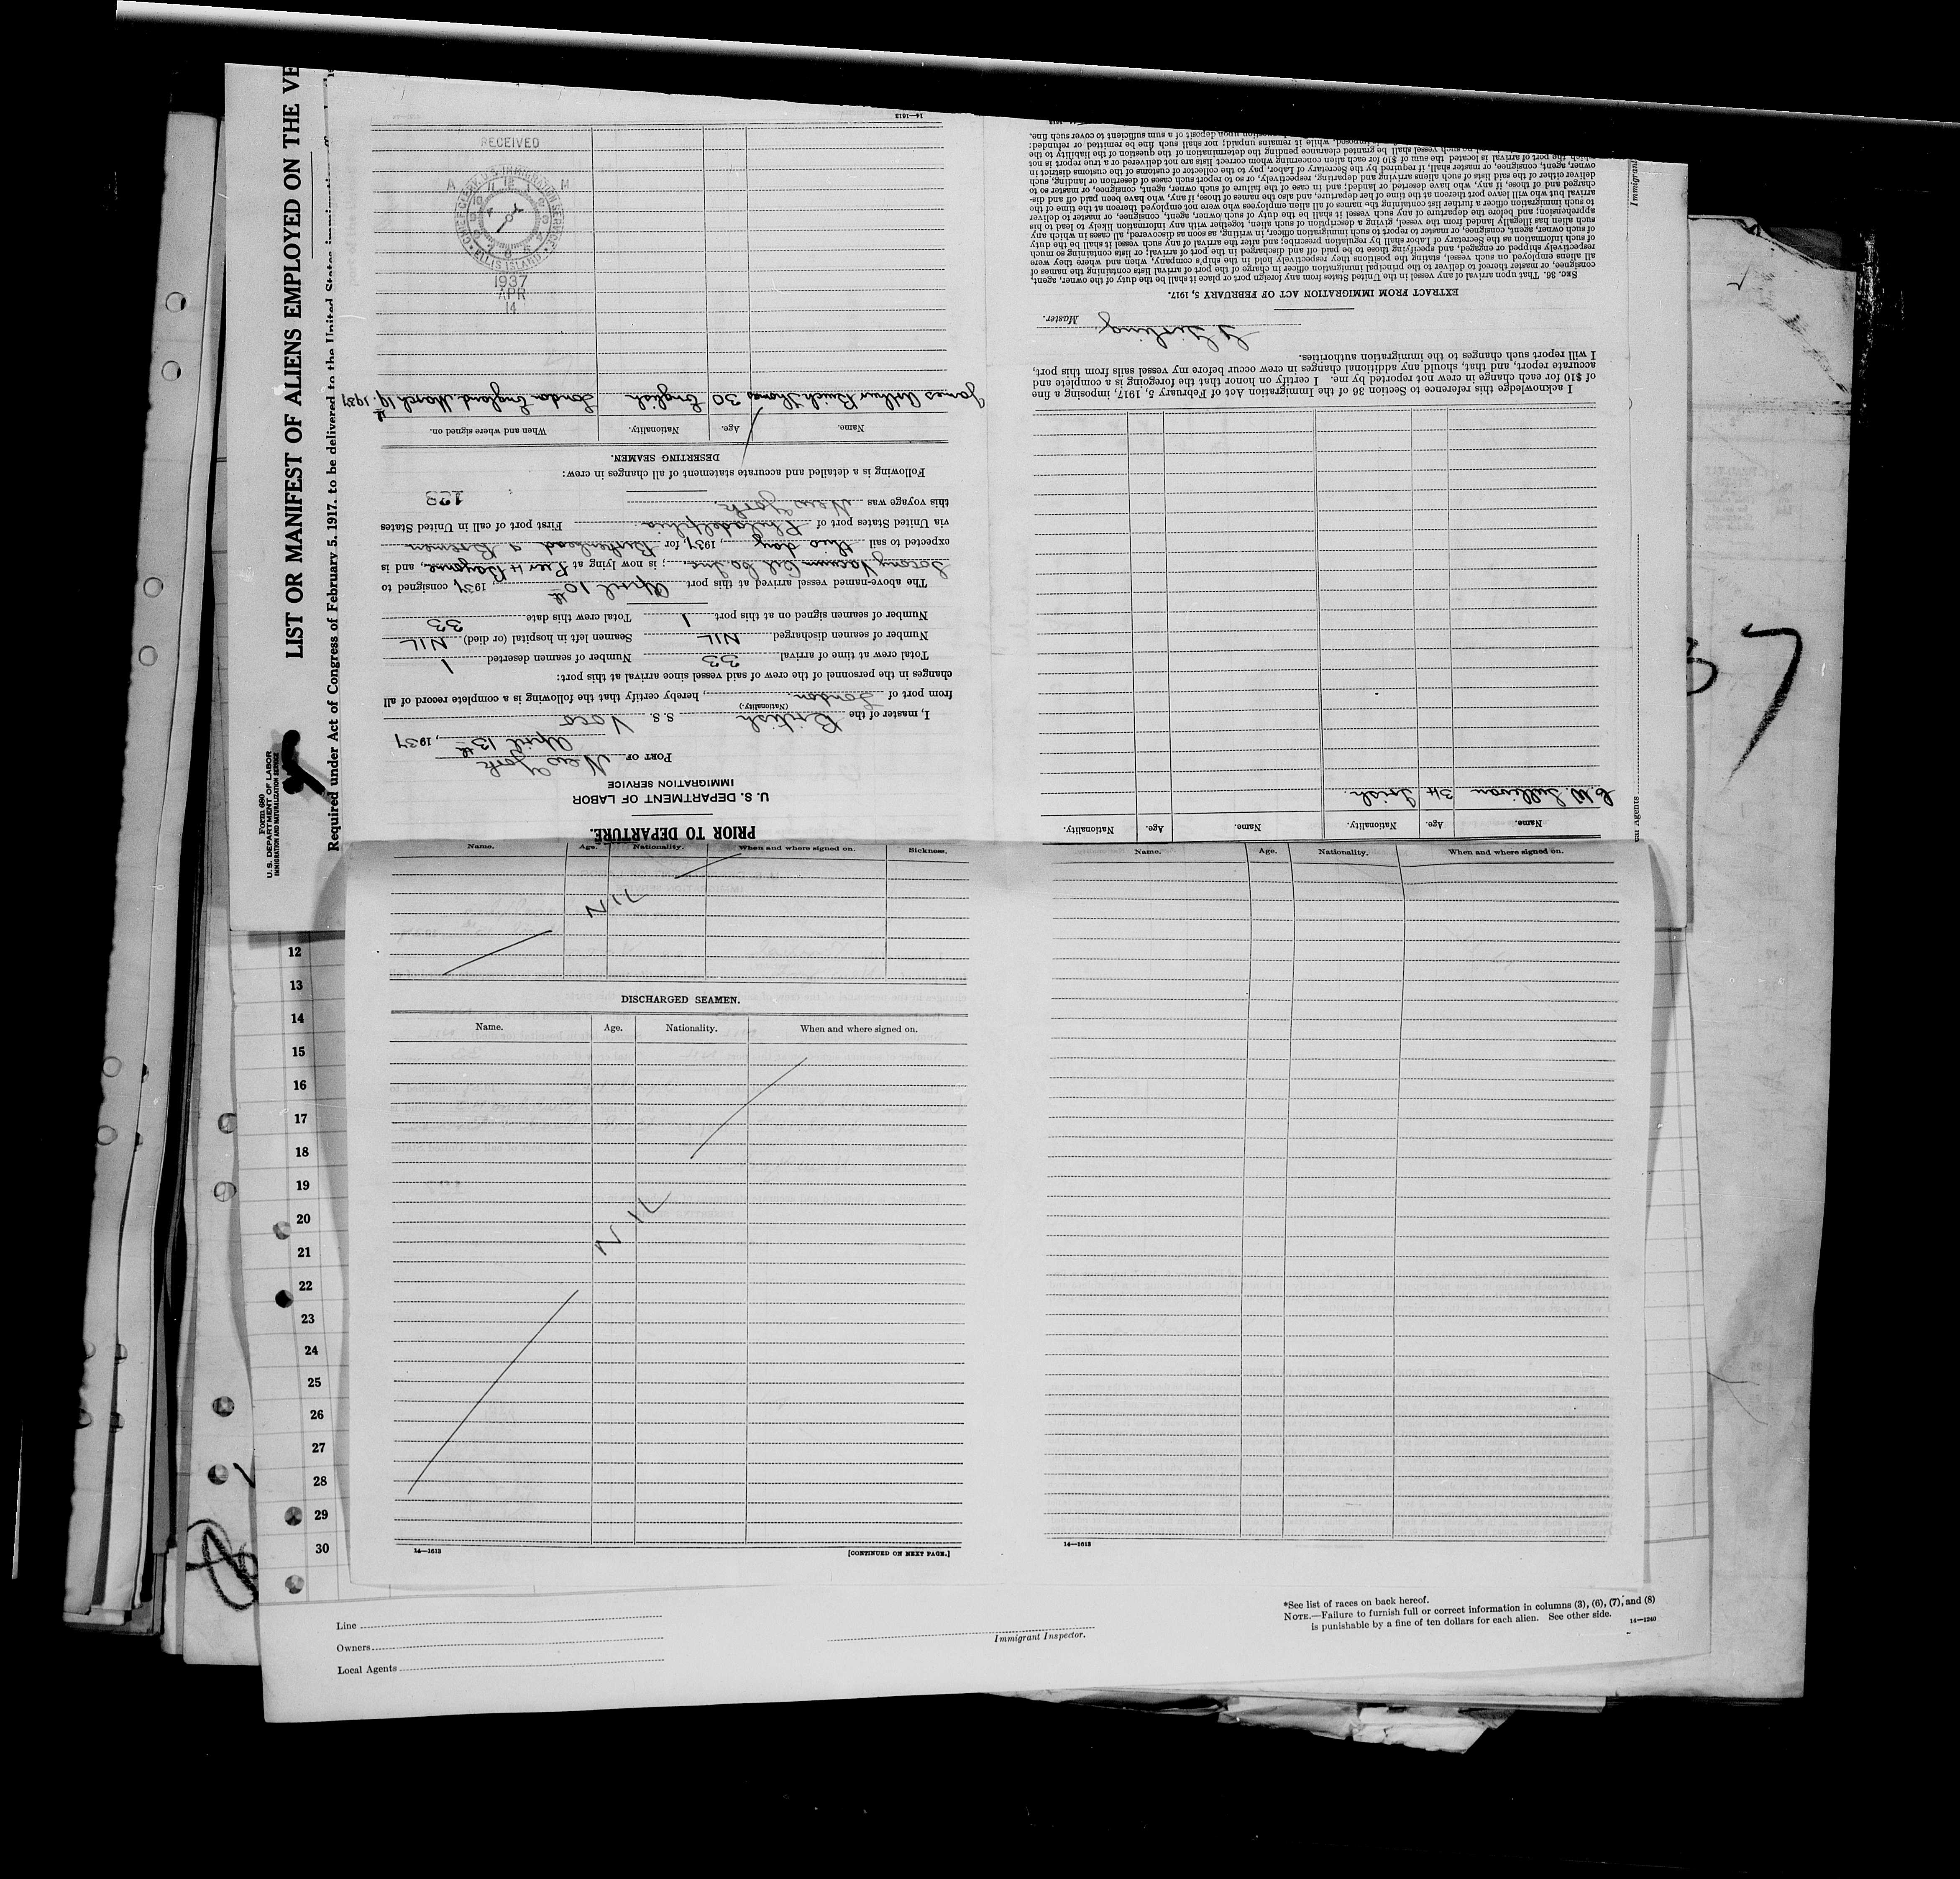 Form 680
U. S. DEPARTMENT OF LABOR
IMMIGRATION AND NATURALIZATION SERVICE
LIST OR MANIFEST OF ALIENS EMPLOYED ON THE VE
Required under Act of Congress of February 5, 1917, to be delivered to the United States immigration
PRIOR TO DEPARTURE.
U. S. DEPARTMENT OF LABOR
IMMIGRATION SERVICE
PORT OF New York
April 13th, 1937
I, master of the British S. S. Vaco
(Nationality)
from port of London, hereby certify that the following is a complete record of all
changes in the personnel of the crew of said vessel since arrival at this port:
Total crew at time of arrival 33 Number of seamen deserted 1
Number of seamen discharged NIL Seamen left in hospital (or died) NIL
Number of seamen signed on at this port 1 Total crew this date 33
The above-named vessel arrived at this port April 10th, 1937, consigned to
Socony Vacuum Oil Co. Inc.; is now lying at Pier 4 Bayonne, and is
expected to sail this day, 1937, for Birkenhead & Bremen
via United States port of Philadelphia First port of call in United States
this voyage was New York
Following is a detailed and accurate statement of all changes in crew:
DESERTING SEAMEN.
Name. Age. Nationality. When and where signed on.
James Arthur Thomas 30 English London England March 19th 1937
14
APR
1937
CHIEF CLERK U.S. IMMIGRATION SERVICE
ELLIS ISLAND
A M
RECEIVED
14—1613
Name. Age. Nationality. Name. Age. Nationality.
C. W. Sullivan 34 Irish.
I acknowledge this reference to Section 36 of the Immigration Act of February 5, 1917, imposing a fine
of $10 for each change in crew not reported by me. I certify on honor that the foregoing is a complete and
accurate report, and that, should any additional changes in crew occur before my vessel sails from this port,
I will report such changes to the immigration authorities.
Master.
EXTRACT FROM IMMIGRATION ACT OF FEBRUARY 5, 1917.
SEC. 36. That upon arrival of any vessel in the United States from any foreign port or place it shall be the duty of the owner, agent,
consignee, or master thereof to deliver to the principal immigration officer in charge of the port of arrival lists containing the names of
all aliens employed on such vessel, stating the positions they respectively hold in the ship's company, when and where they were
respectively shipped or engaged, and specifying those to be paid off and discharged in the port of arrival; or lists containing so much
of such information as the Secretary of Labor shall by regulation prescribe; and after the arrival of any such vessel it shall be the duty
of such owner, agent, consignee, or master to report to such immigration officer, in writing, as soon as discovered, all cases in which any
such alien has illegally landed from the vessel, giving a description of such alien, together with any information likely to lead to his
apprehension; and before the departure of any such vessel it shall be the duty of such owner, agent, consignee, or master to deliver
to such immigration officer a further list containing the names of all alien employees who were not employed thereon at the time of the
arrival but who will leave port thereon at the time of her departure, and also the names of those, if any, who have been paid off and dis-
charged and of those, if any, who have deserted or landed; and in case of the failure of such owner, agent, consignee, or master so to
deliver either of the said lists of such aliens arriving and departing, respectively, or so to report such cases of desertion or landing, such
owner, agent, consignee, or master shall, if required by the Secretary of Labor, pay to the collector of customs of the customs district in
which the port of arrival is located the sum of $10 for each alien concerning whom correct lists are not delivered or a true report is not
no such vessel shall be granted clearance pending the determination of the question of the liability to the
imposed, while it remains unpaid; nor shall such fine be remitted or refunded:
question upon deposit of a sum sufficient to cover such fine.
Immigrant
Agents
Name. Age. Nationality. When and where signed on. Sickness.
NIL
DISCHARGED SEAMEN.
Name. Age. Nationality. When and where signed on.
NIL
14—1613
[CONTINUED ON NEXT PAGE.]
Name. Age. Nationality. When and where signed on.
14—1613
12
13
14
15
16
17
18
19
20
21
22
23
24
25
26
27
28
29
30
Line
Owners
Local Agents
Immigrant Inspector.
*See list of races on back hereof.
NOTE.—Failure to furnish full or correct information in columns (3), (6), (7), and (8)
is punishable by a fine of ten dollars for each alien. See other side.
14—1240